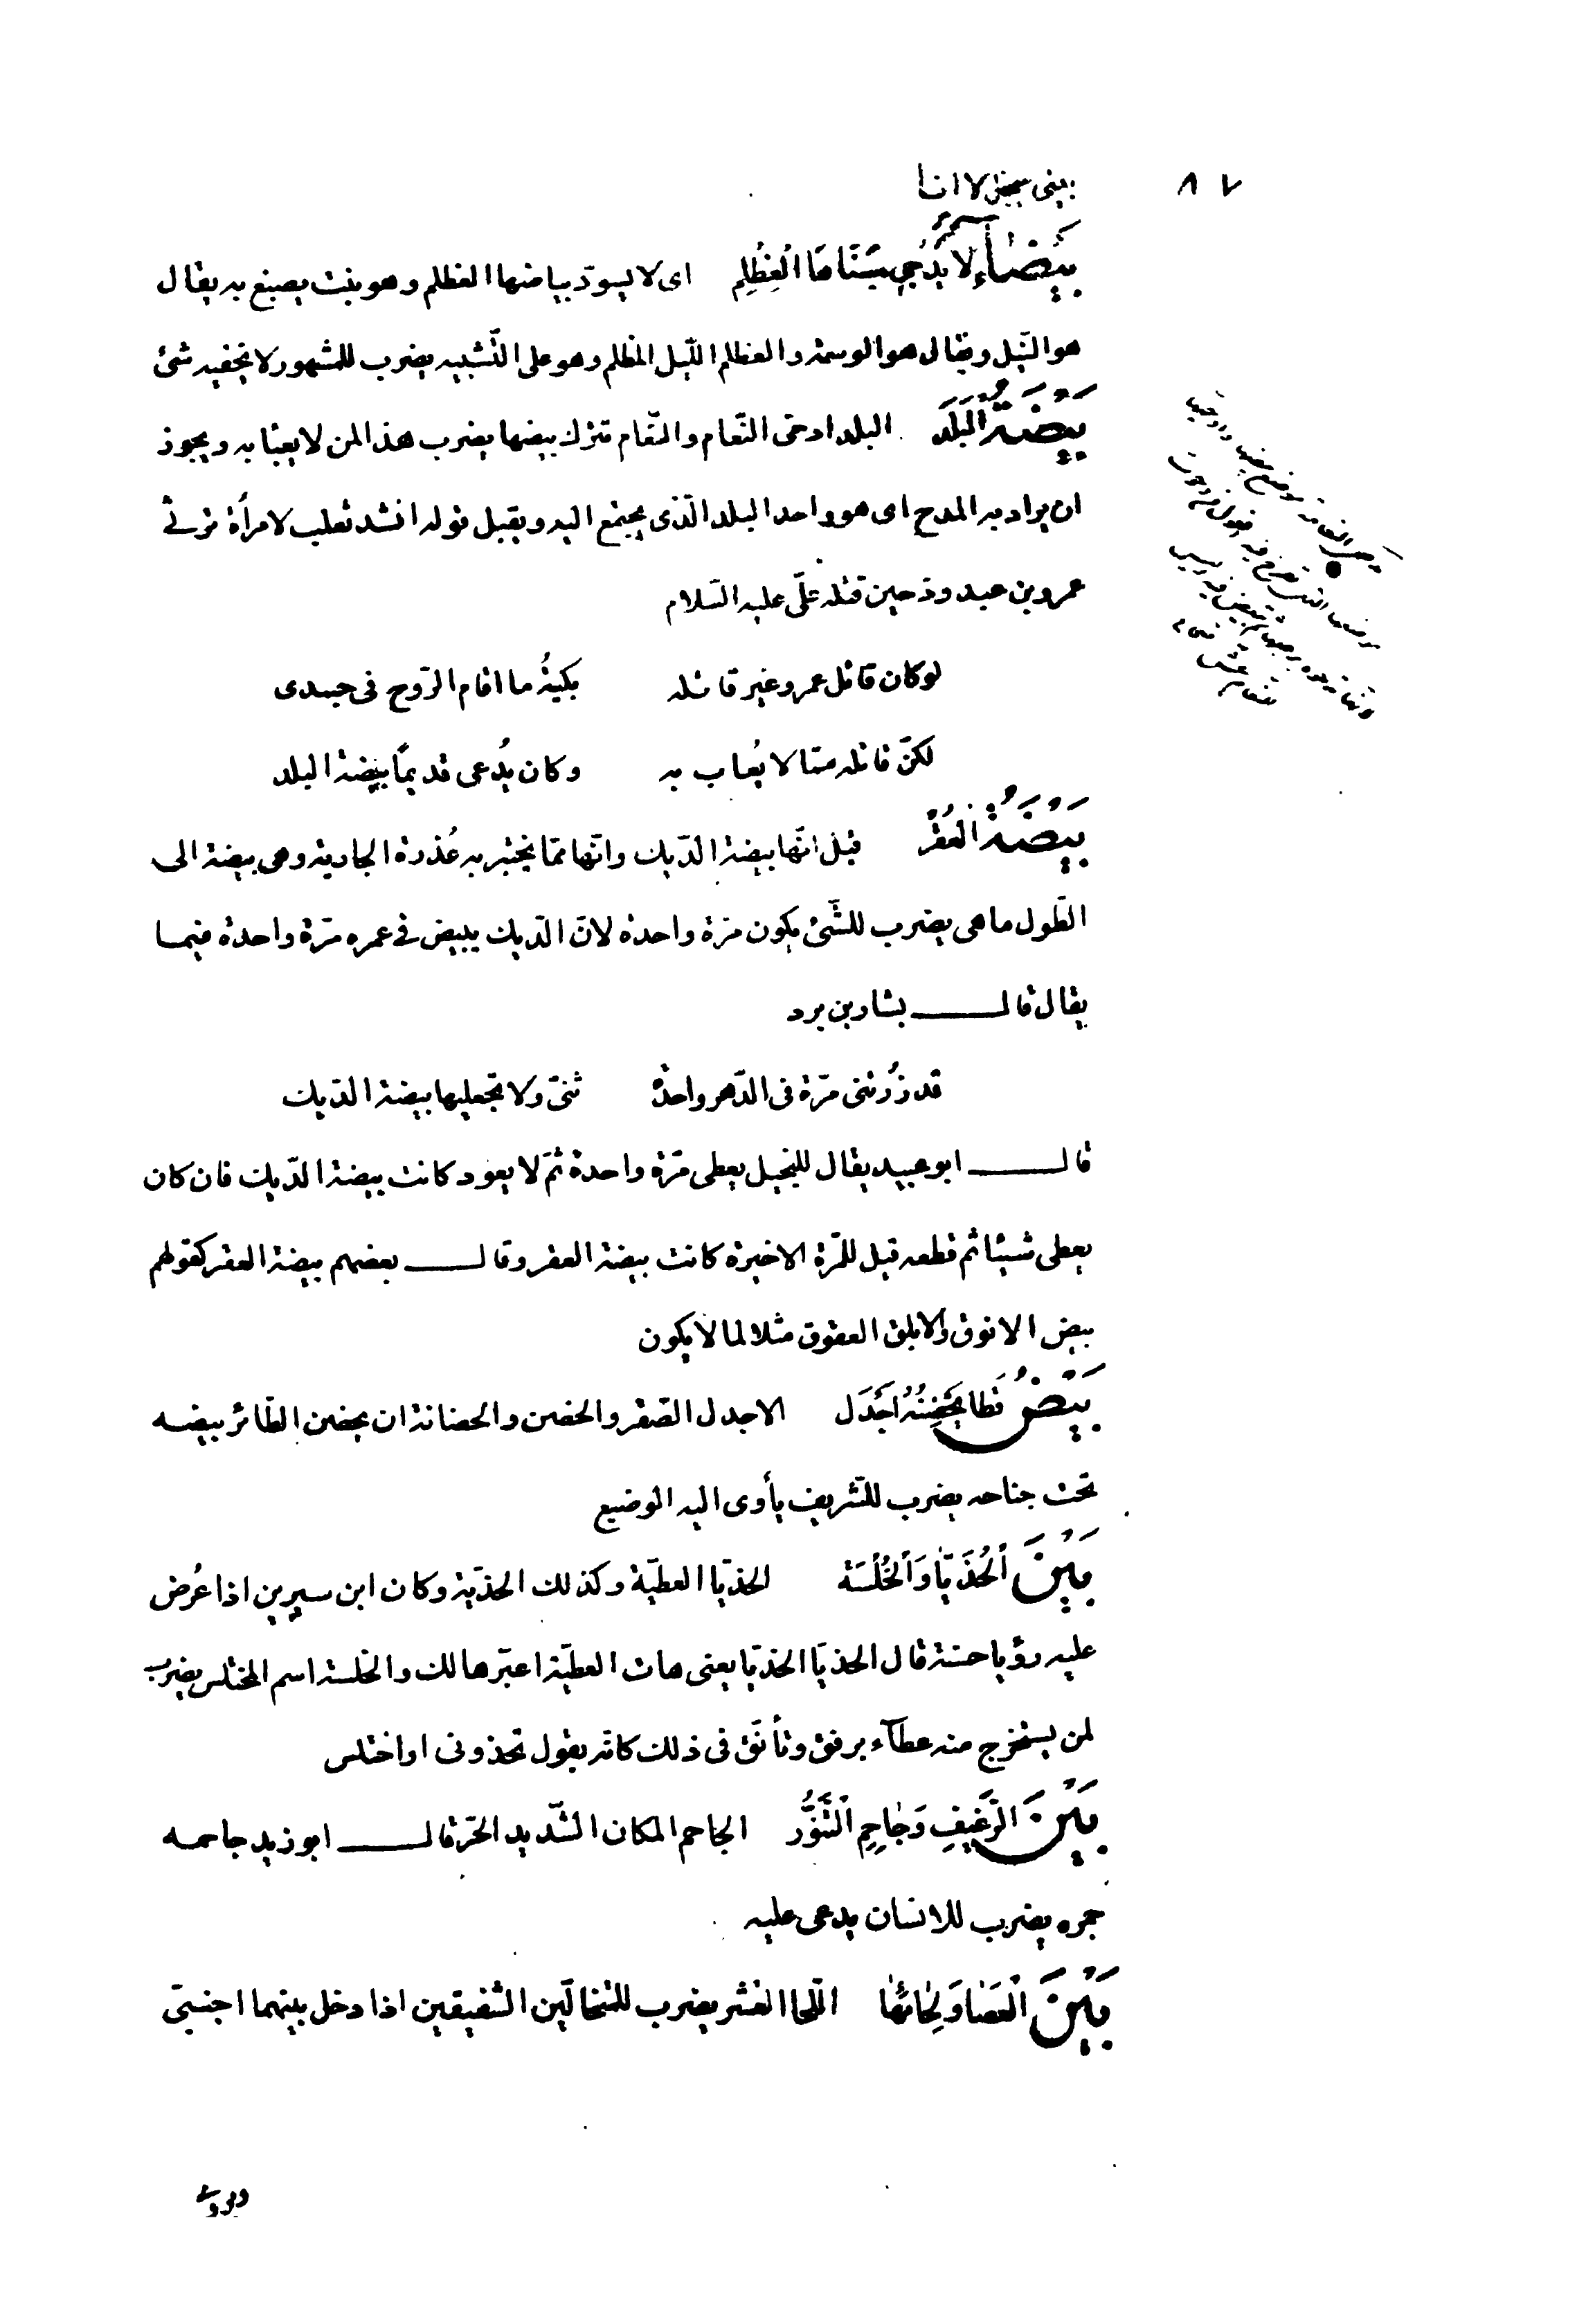 ٨٧
بيتى يبخل لا انا
بَيْضَاءُ لا يُدْجِي سَنَاهَا الْعِظْلِم اى لا يسودّ بياضها العظلم وهو نبت يصبغ به يقال
هو النّيل ويقال هو الوسمة والعظلم اللّيل المظلم وهو على التّشبيه يضرب للمشهور لا يخفيه شئ
بَيْضَةُ الْبَلَدِ البلد ادحىّ النّعام والنّعام تترك بيضها يضرب هذا لمن لا يعبا به ويجوز
ان يراد به المدح اى هو واحد البلد الّذى يجتمع اليه ويقبل قوله انشد ثعلب لامرأة ترثى
عمرو بن عبد ودّ حين قتله علىّ عليه السّلام
لو كان قاتل عمرو غير قاتله بكيتُه ما اقام الرّوح فى جسدى
لكنّ قاتله من لا يُعاب به وكان يُدعى قديمًا بيضة البلد
بَيْضَةُ الْعُقْرِ قيل انّها بيضة الدّيك وانّها ممّا يختبر به عُذرة الجارية وهى بيضة الى
الطّول ما هى يضرب للشّئ يكون مرّة واحدة لانّ الدّيك يبيض فى عمره مرّة واحدة فيما
يقال قال بشار بن برد
قد زُرتنى مرّة فى الدّهر واحدة ثنّى ولا تجعليها بيضة الدّيك
قال ابو عبيد يقال للبخيل يعطى مرّة واحدة ثمّ لا يعود كانت بيضة الدّيك فان كان
يعطى شيئا ثم قطعه قيل للمرّة الاخيرة كانت بيضة العقر وقال بعضهم بيضة العقر كقولهم
بيض الانوق والابلق العقوق مثلا لما لا يكون
بَيْضُ قَطَا يَحْضِنُهُ اَجْدَل الاجدل الصّقر والحضن والحضانة ان يحضن الطّائر بيضه
تحت جناحه يضرب للشّريف يأوى اليه الوضيع
بَيْنَ الْحُذَيَّا وَالْخُلْسَة الحذيّا العطيّة وكذلك الحذيّة وكان ابن سيرين اذا عُرض
عليه رؤيا حسنة قال الحذيّا الحذيّا يعنى هات العطيّة اعبّرها لك والخلسة اسم المختلس يضرب
لمن يستخرج منه عطآء برفق وتأنّق فى ذلك كانّه يقول تحذونى او اختلس
بَيْنَ الرَّغِيفِ وَجَاحِمِ الْتَّنُّور الجاحم المكان الشّديد الحرّ قال ابو زيد جاحمه
جمره يضرب للانسان يدعى عليه
بَيْنَ الْعَصَا وَلِحَائِهَا اللّحا القشر يضرب للمتخالّين الشّفيقين اذا دخل بينهما اجنبىّ